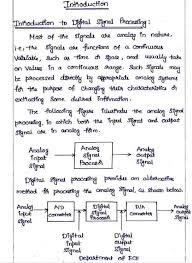 Introduction
Introduction to Digital Signal Processing:
Most of the signals are analog in nature,
i.e., the signals are functions of a continuous
variable, such as time or space, and usually take
on values in a continuous range. Such signals may
be processed directly by appropriate analog systems
for the purpose of changing their characteristics or
extracting some desired information.
The following figure illustrate the analog signal
processing, in which both the input and output
signal are in analog form.
Analog
Input
Signal
Analog
Signal
Processor
Analog
output
signal
Digital signal processing provides an alternative
method for processing the analog signal, as shown below.
Analog
input
signal
A/D
converter
Digital
Signal
Processor
D/A
converter
Analog
output
signal
Digital
Input
signal
Digital
output
signal
Department of ECE